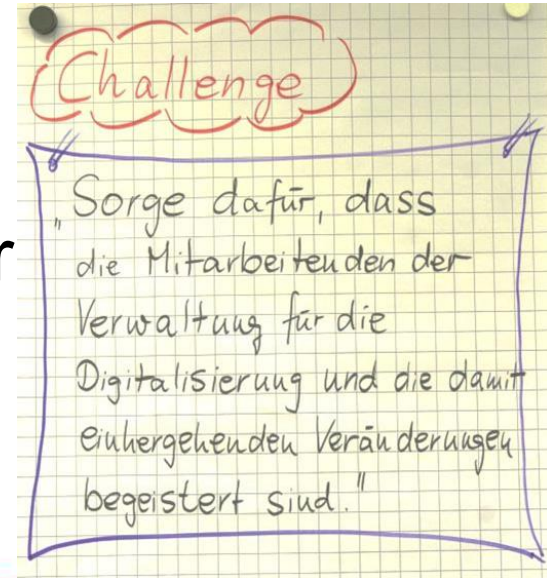 Challenge
„Sorge dafür, dass
die Mitarbeitenden der
Verwaltung für die
Digitalisierung und die damit
einhergehenden Veränderungen
begeistert sind."
r